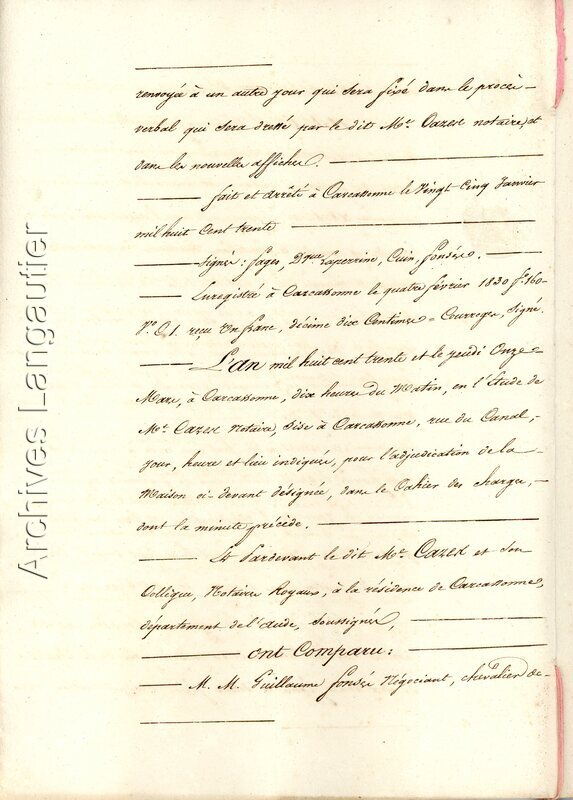 renvoyée à un autre jour qui sera fixé dans le procès-
verbal qui sera dressé par le dit Me. Cazes notaire, et
dans les nouvelles affiches.
fait et arrêté à Carcassonne le Vingt Cinq Janvier
mil huit Cent trente
Signés: Sages, Dque Laperrine, Cuin, fonsés.
Enregistré à Carcassonne le quatre février 1830 fo. 160
Vo. C 1. reçu Un franc, décime dix Centimes = Courrege, Signé.
L'an mil huit cent trente et le jeudi Onze
Mars, à Carcassonne, dix heures du Matin, en l'Etude de
Me. Cazes Notaire, Sise à Carcassonne, rue du Canal,
jour, heure et lieu indiqués, pour l'adjudication de la
Maison ci-devant désignée, dans le Cahier des charges,
dont la minute précède.
Et Pardevant le dit Me. Cazes et Son
Collègue, Notaires Royaux, à la résidence de Carcassonne,
département de l'aude, Soussignés,
Ont Comparu:
M. M. Guillaume fonsés Négociant, chevalier de
Archives Langautier